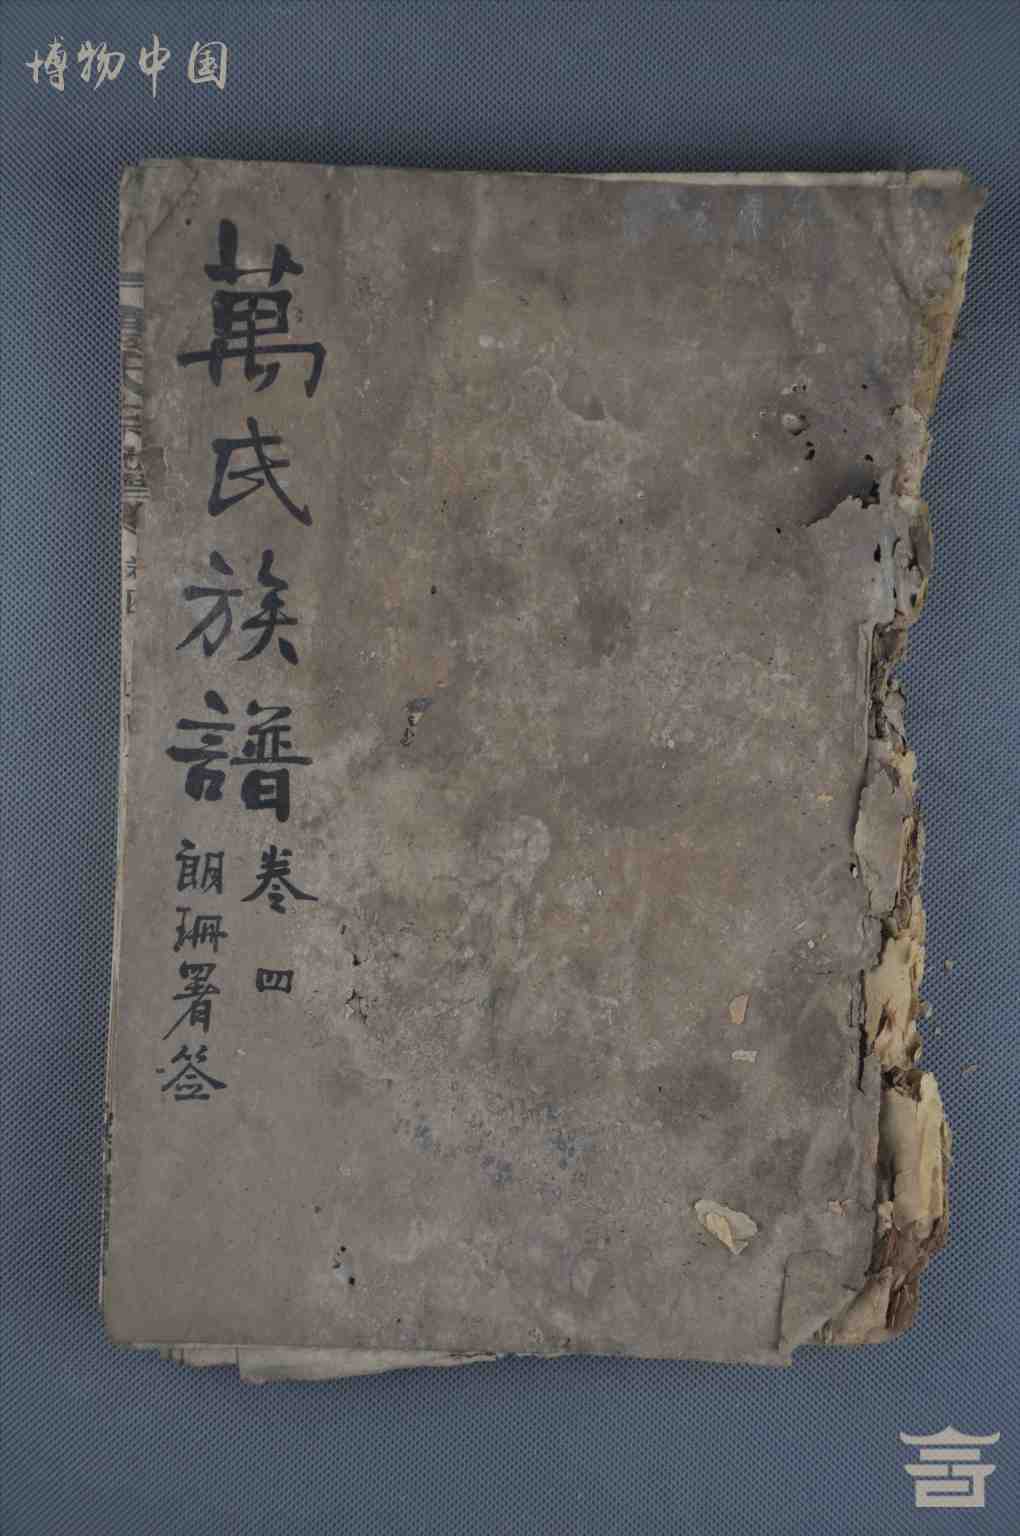 博物中国
萬氏族譜
卷四
朗珊署签